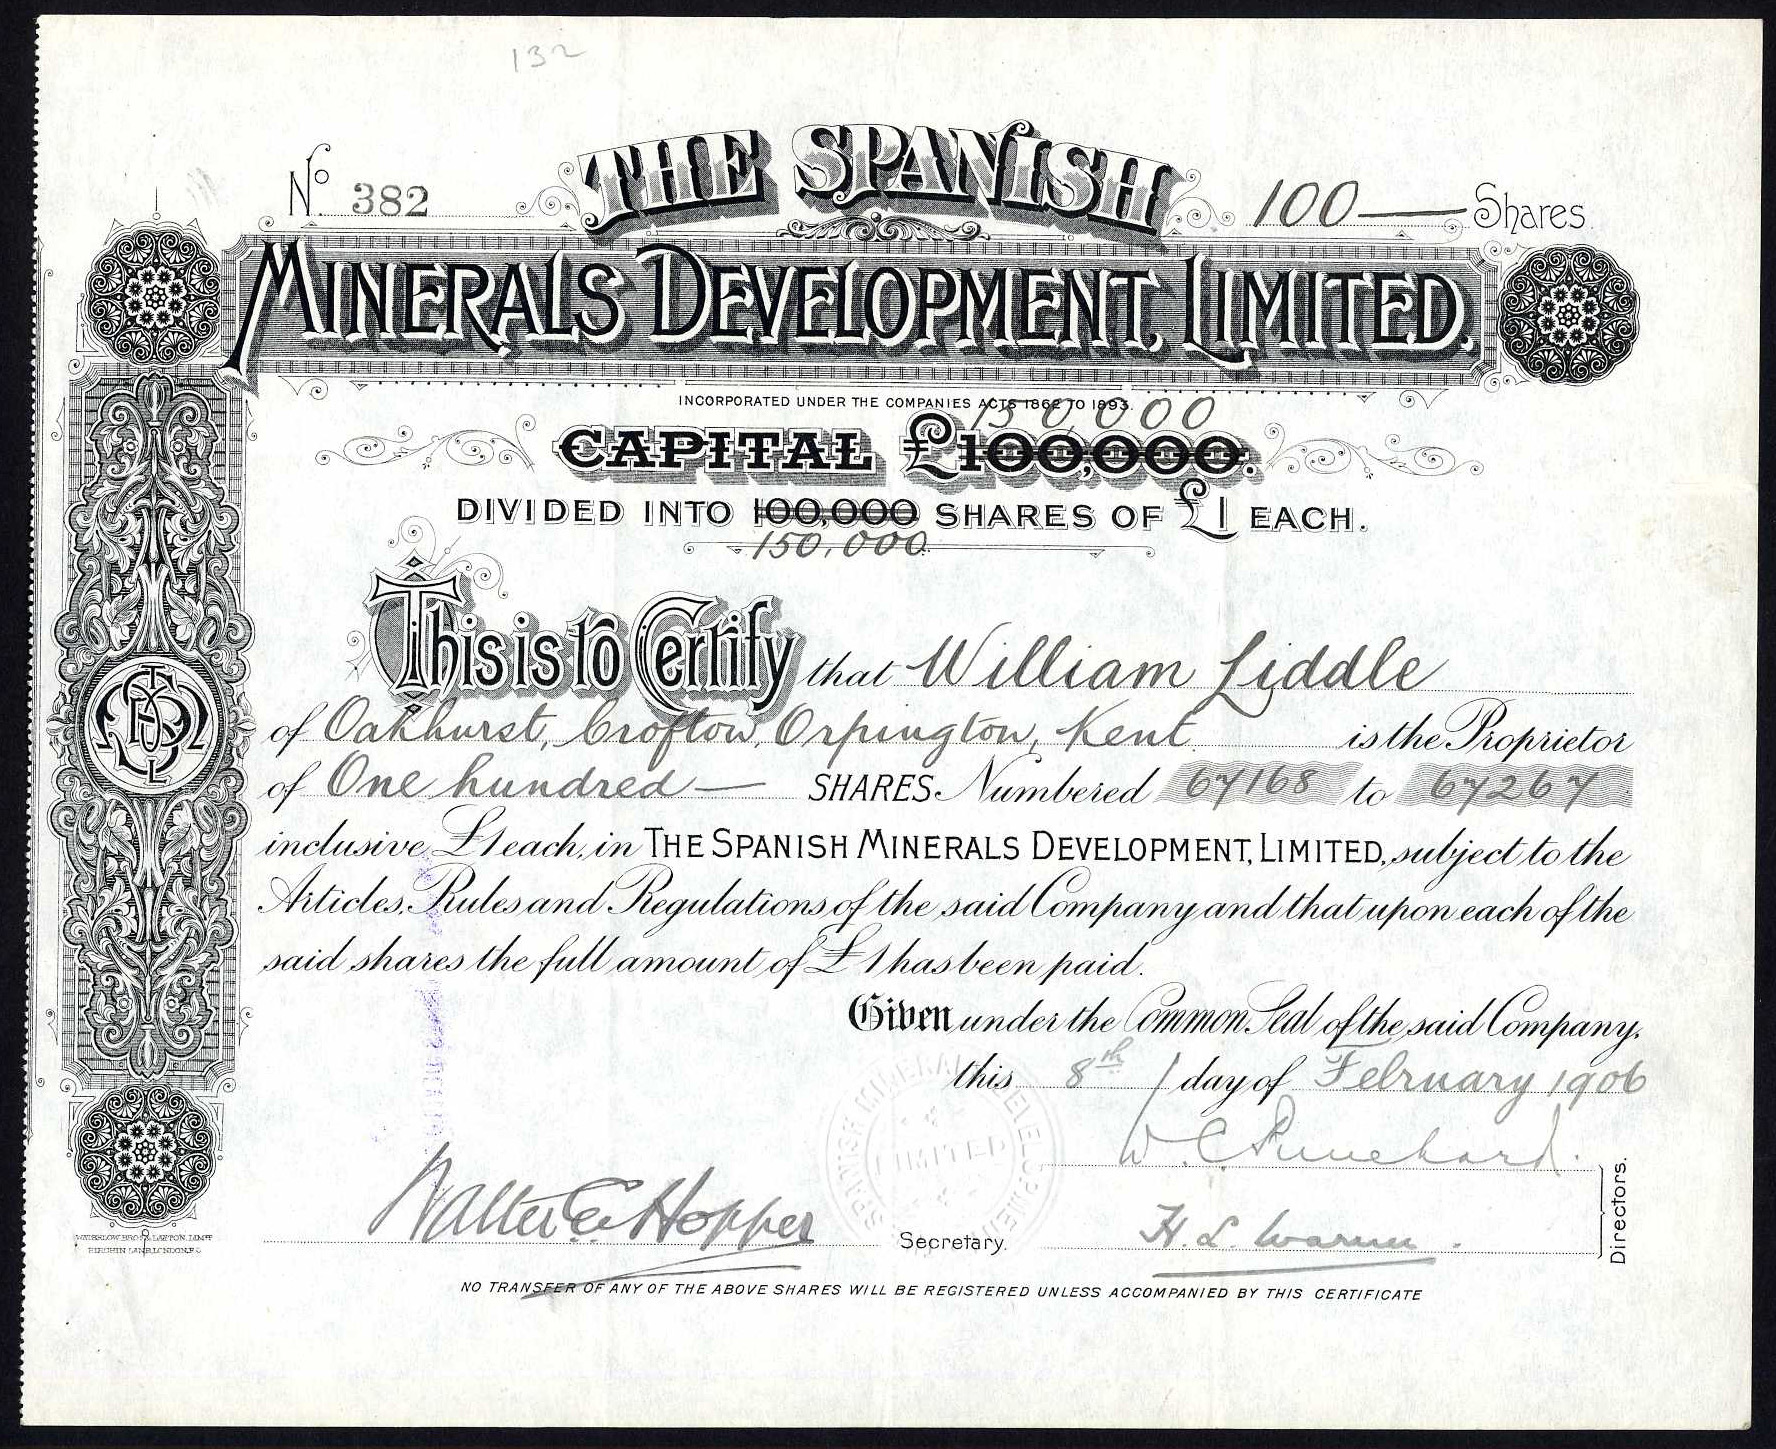 132
No. 382
100 — Shares
THE SPANISH
MINERALS DEVELOPMENT, LIMITED.
INCORPORATED UNDER THE COMPANIES ACTS 1862 TO 1893.
150,000
CAPITAL £100,000.
DIVIDED INTO 100,000 SHARES OF £1 EACH.
150,000
This is to Certify that William Liddle
of Oakhurst, Crofton, Orpington, Kent is the Proprietor
of One hundred — SHARES. Numbered 67168 to 67267
inclusive £1 each, in THE SPANISH MINERALS DEVELOPMENT, LIMITED, subject to the
Articles, Rules and Regulations of the said Company and that upon each of the
said shares the full amount of £1 has been paid.
Given under the Common Seal of the said Company,
this 8th day of February 1906
SPANISH MINERALS DEVELOPMENT
LIMITED
W. C. Punchard.
Walter C. Hopper Secretary.
H. L. Warner.
Directors.
WATERLOW BROS & LAYTON, LIMTD
BIRCHIN LANE, LONDON, E.C.
NO TRANSFER OF ANY OF THE ABOVE SHARES WILL BE REGISTERED UNLESS ACCOMPANIED BY THIS CERTIFICATE